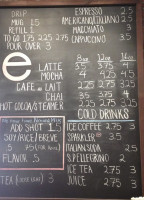 DRIP
MUG 1.5
REFILL 1
TO GO 1.75 2.25 2.75
POUR OVER 3
ESPRESSO 2.5
AMERICANO/ITALIANO 2.5
MACCHIATO 3
CAPPUCCINO 3.5
e
LATTE 3.5 3.75 4
MOCHA 4 4.25 4.5
CAFE au LAIT 2.25 2.75 3.25
CHAI 3.5 3.75 4
HOT COCOA/STEAMER 2.25 2.75 3.25
COLD DRINKS
ADD SHOT 1.5
SOY/RICE/BREVE
.5
FLAVOR .5
TEA 3
ICE COFFEE 2.75 3
SPARKLER 3 3.5
ITALIAN SODA 2.5
S. PELLEGRINO 2
ICE TEA 2.75 3
JUICE 2.75 3